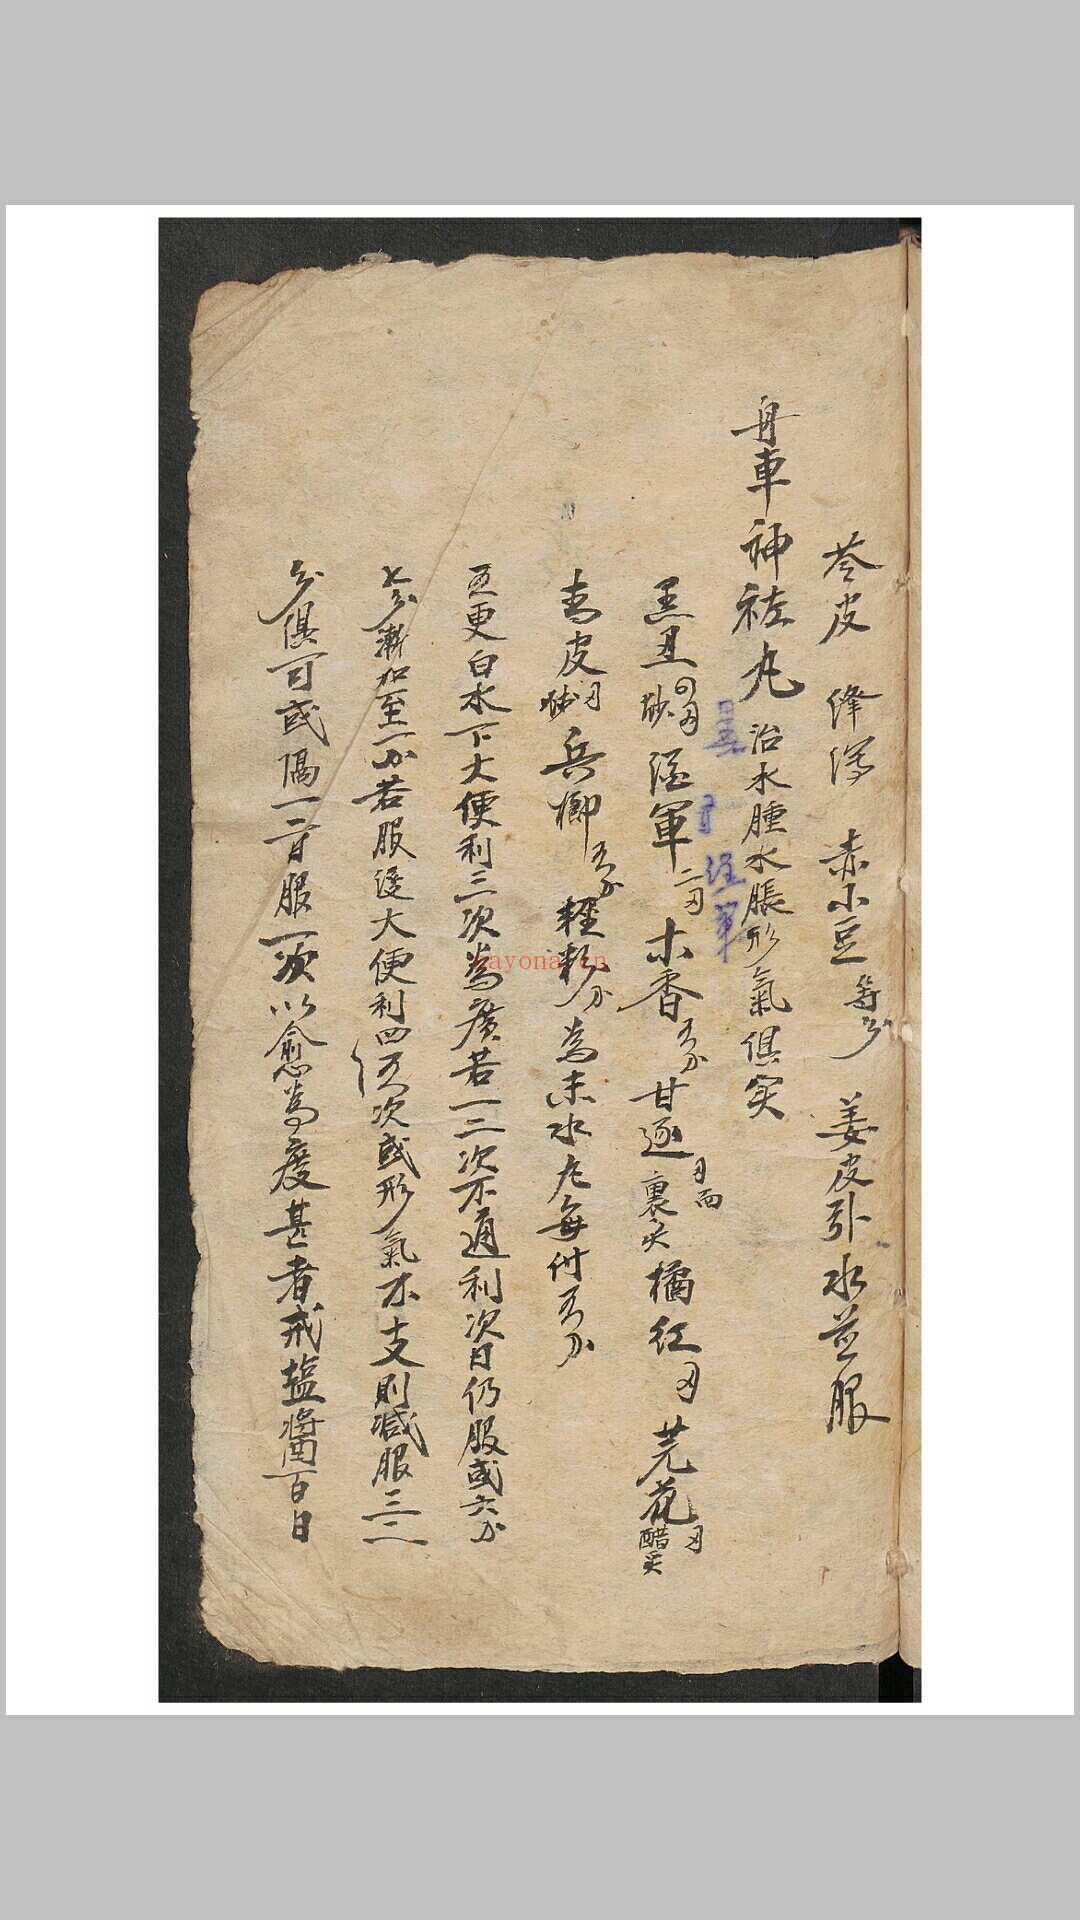 苓皮 絳 赤小豆 等分 姜皮引水並服
舟車神祐丸 治水腫水脹形氣俱实
黑丑 四刃 炒 军 二刃 木香 五分 甘遂 刃 面裹炙 橘红 刃 芫花 刃 醋炙
青皮 刃 炒 兵榔 五分 輕粉 分 為末水丸每付五分
五更白水下大便利三次為度若一二次不通利次日仍服或六分
七分漸加至一分若服後大便利四五次或形氣不支則減服三二
分俱可或隔一二日服一次以愈為度甚者戒塩醬百日
黑